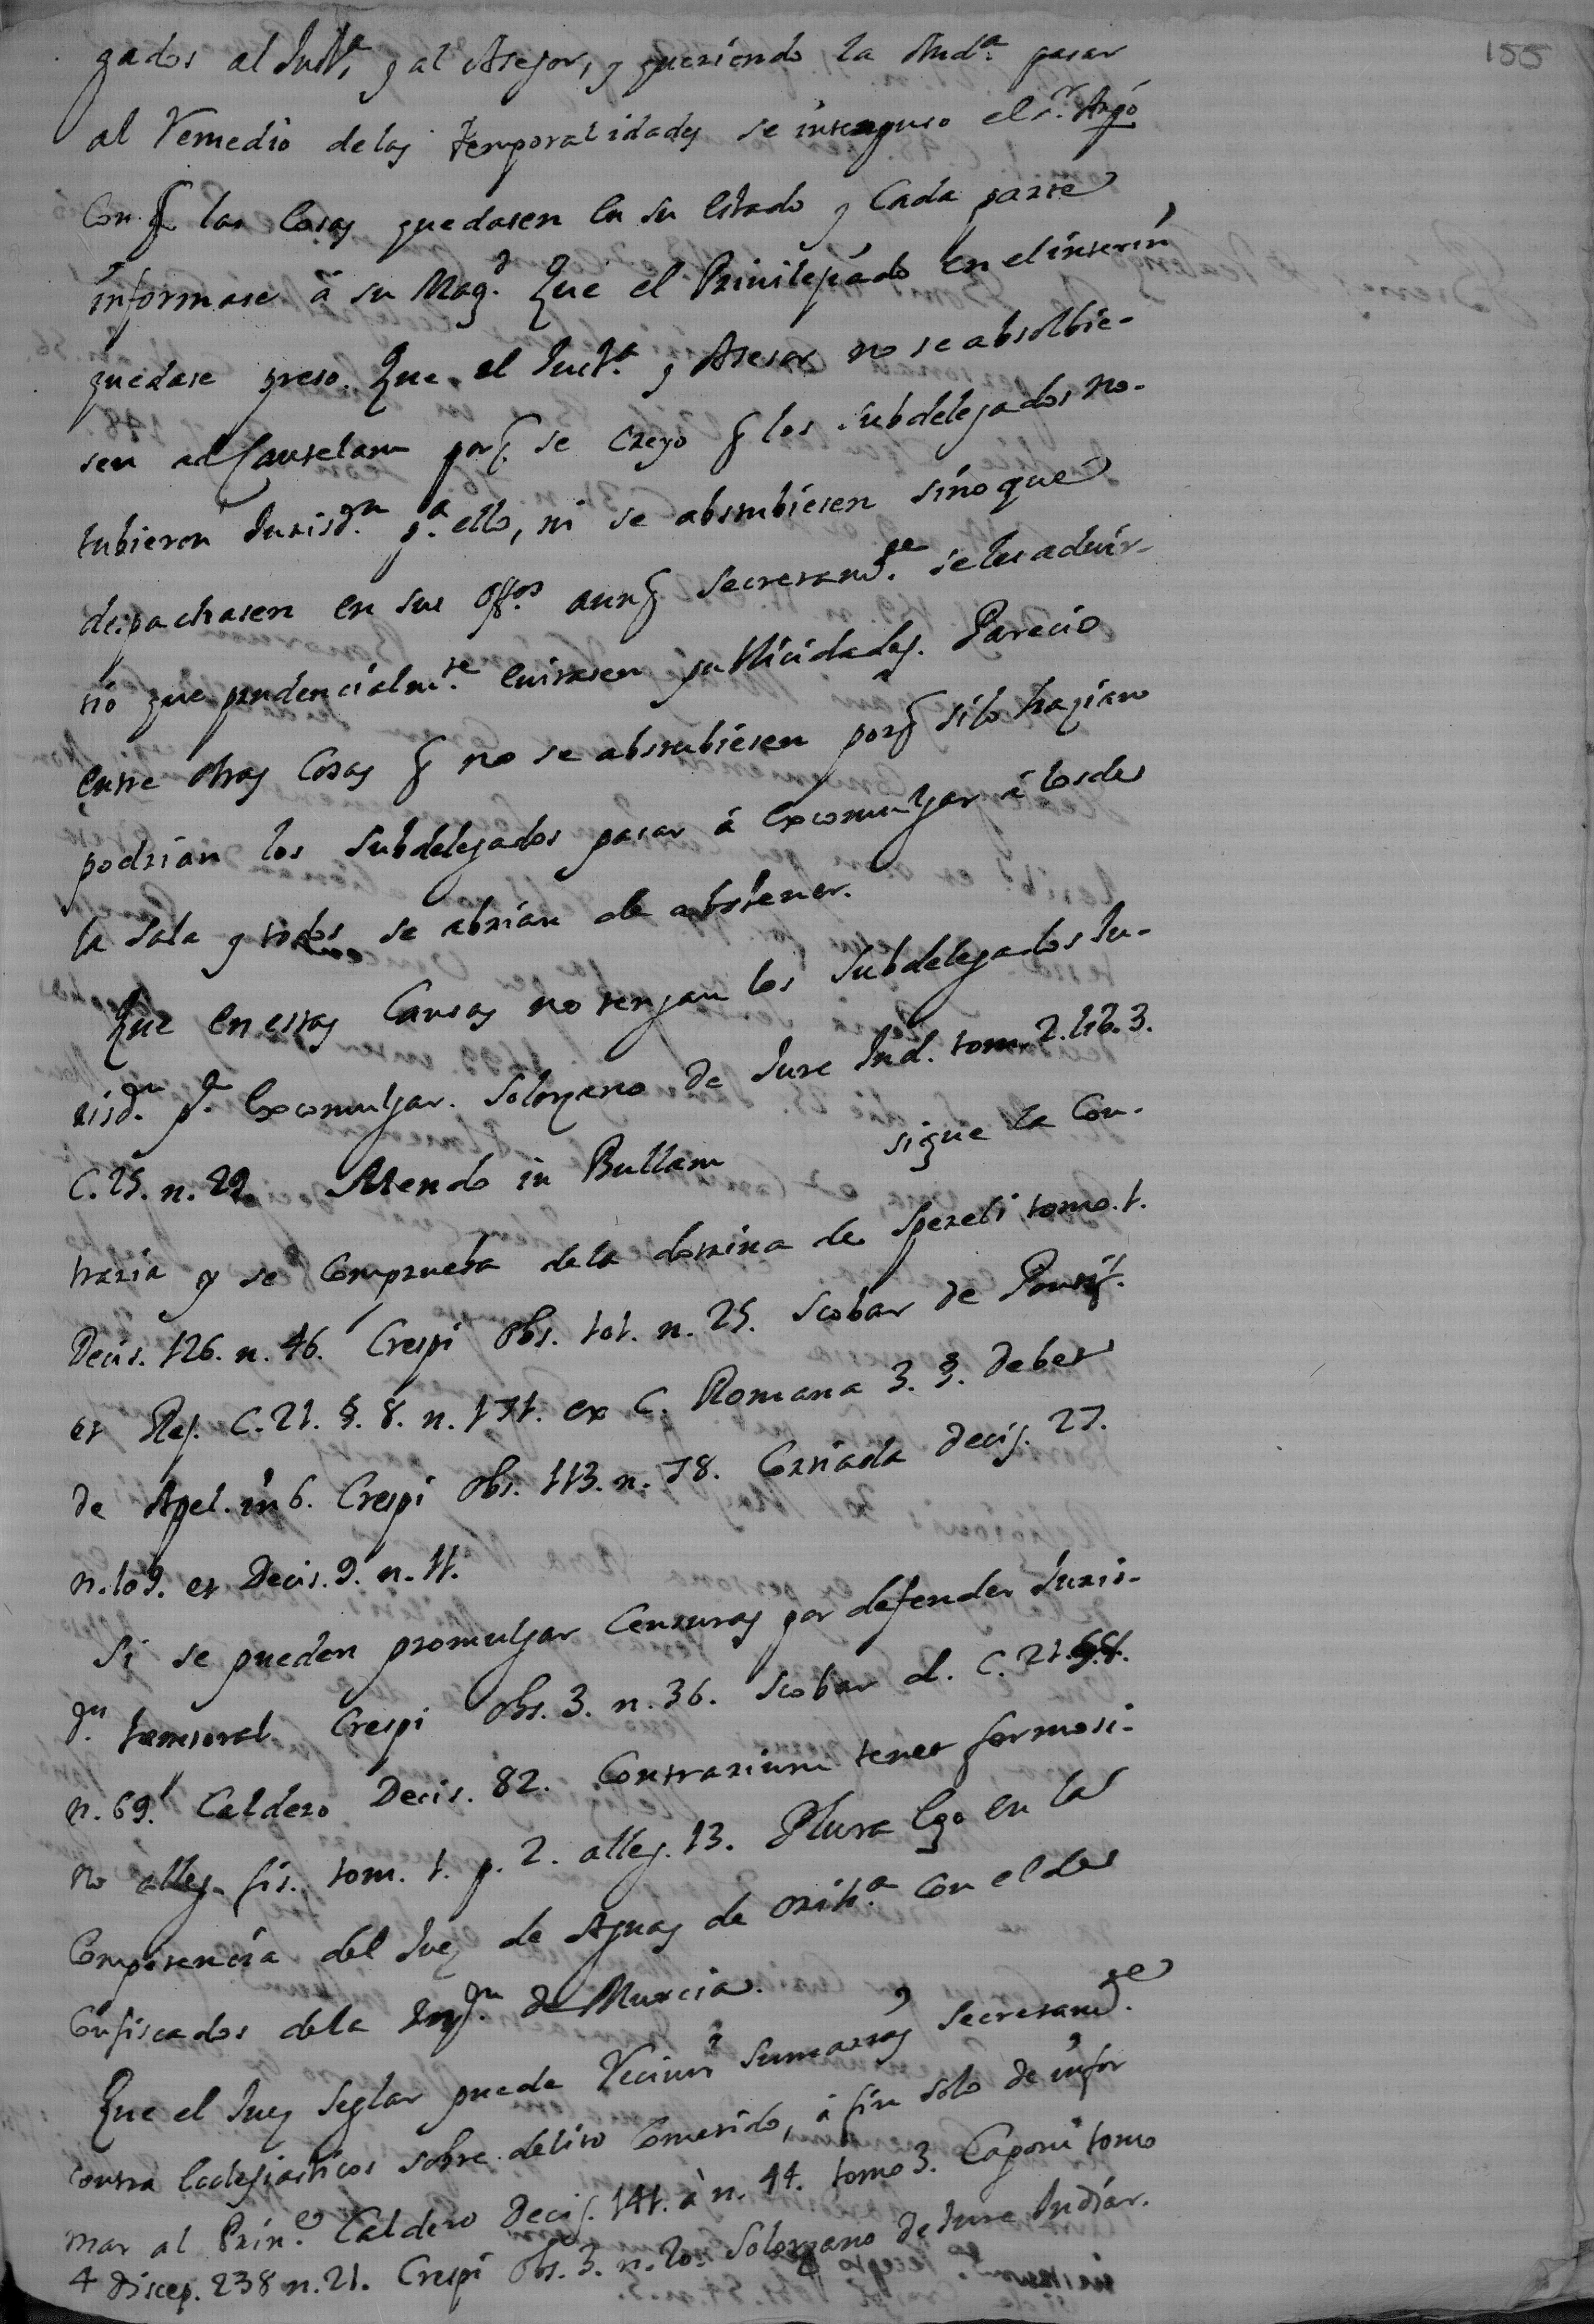 155
gados al Just.ª y al Asesor, y queriendo la Aud.ª pasar
al Remedio delas temporalidades se interpuso el s.r Arpó
Con q̃ las Cosas quedasen en su estado y Cada parte
informase â su Mag.d Que el Privilegiado en el interin
quedase preso. Que el Just.ª y Asesor no se absolbie-
sen ad Cautelam porq̃ se Creyo q̃ los Subdelegados no-
tubieron Jurisd.n p.ª ello, ni se abstubiesen sino que
despachasen en sus off.os aunq̃ Secretam.te se les advir-
tió que prudencialm.te evitasen publicidades. Parecio
entre otras Cosas q̃ no se abstubiesen porq̃ silo hazian
podrian los Subdelegados pasar â excomulgar â losde
la Sala y todos se abrian de abstener.
Que en estas Causas no tengan los Subdelegados Ju-
risd.n p.ª excomulgar. Solorzano de Jure Ind. tom. 2. lib. 3.
C. 25. n. 29. Mendo in Bullam sigue la Con-
traria y se Comprueba dela dotrina de Spereli tomo. 1.
Decis. 126. n. 46. Crespi Obs. 101. n. 25. Scobar de Pontif.
et Reg. C. 21. §. 8. n. 171. ex C. Romana 3. §. debet
de Apel. in 6. Crespi Obs. 113. n. 78. Cortiada decis. 27.
n. 109. et Decis. 9. n. 11.
Si se pueden promulgar Censuras por defender Juris-
d.n temporal Crespi Obs. 3. n. 36. Scobar d. C. 21. §. 8.
n. 69. Caldero Decis. 82. Contrarium tenet formosi-
no alleg. fis. tom. 1. p. 2. alleg. 13. Plura ego en la
Competencia del Juez de Aguas de Orih.ª con el de
Confiscados dela Inq.n de Murcia.
Que el Juez Seglar puede Recivir Sumarias Secretam.te
contra Ecclesiasticos sobre delito Cometido, â fin solo de infor
mar al Prin.e Caldero Decis. 141. à n. 44. tomo 3. Caponi tomo
4 discep. 238 n. 21. Crespi Obs. 3. n. 20. Solorzano de Jure Indiar.